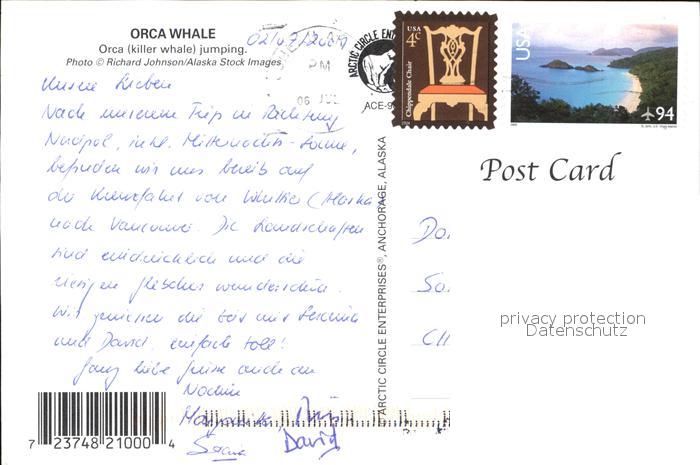 ORCA WHALE
Orca (killer whale) jumping.
Photo © Richard Johnson/Alaska Stock Images
02/07/2009
PM
06 JUL
ARCTIC CIRCLE EN
ACE-9
USA
4c
Chippendale Chair
USA
94
Post Card
Unsere Lieben
Nach unserem Trip in Richtung
Nordpol, inkl. Mitternachts-Sonne,
befinden wir uns bereits auf
der Kreuzfahrt von Whittier (Alaska
nach Vancouver. Die Landschaften
sind eindrücklich und die
riesigen Gletscher wunderschön.
Wir geniessen die Zeit mit
und David, einfach toll!
Ganz liebe Grüsse auch an
David
ARCTIC CIRCLE ENTERPRISES®, ANCHORAGE, ALASKA
Do
Sa
CH
privacy protection
Datenschutz
7 23748 21000 4